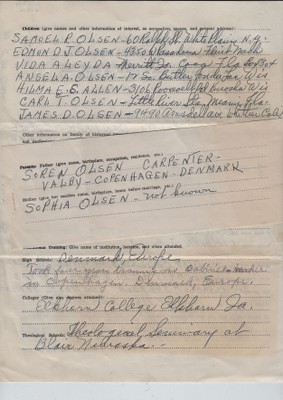 Children (give names and other information of interest, as occupations, and present address)
SAMUEL P. OLSEN - 60 Ralph St. White Plains, N.Y.
EDMOND J OLSEN - 4350 W Pasadena Flint Mich
VIDA ALEYDA - Merritt Is. Cocoa Fla Box 304
ANGEL A. OLSEN - 17 So. Butler, Madison Wis
HILMA E.S. ALLEN - 3106 Roosevelt Kenosha Wis
CARL T. OLSEN - Little River Sta, Miami, Fla.
JAMES D. OLSEN - 9490 Whittier Calif
Other information on family of interest
Parents: Father (give name, birthplace, occupation, residence, etc.)
SOREN OLSEN CARPENTER-
VALBY - COPENHAGEN - DENMARK
Mother (give her maiden name, birthplace, home before marriage, etc.)
SOPHIA OLSEN - not known
Training: Give name of institution, location, and when attended.
High School: Denmark, Europe.
Took Drawing and Cabinet
in Copenhagen, Denmark, Europe.
Colleges (Give also degrees attained):
Elkhorn College Elkhorn Ia.
Theological Schools: Theological Seminary at
Blair Nebraska -